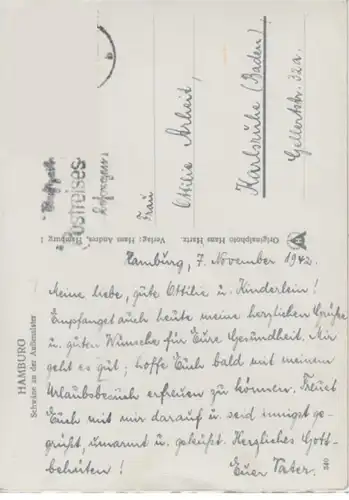 Frau
Ottilie Arheit,
Karlsruhe (Baden)
Gellertstr. 32a.
Postreises
Originalphoto Hans Hartz. Verlag: Hans Andres, Hamburg 1
HAMBURG
Schwäne an der Außenalster
240
Hamburg, 7. November 1942.
Meine liebe, gute Ottilie u. Kinderlein!
Empfanget auch heute meine herzlichen Grüße
u. guten Wünsche für Eure Gesundheit. Mir
geht es gut; hoffe Euch bald mit meinem
Urlaubsbesuch erfreuen zu können. Freuet
Euch mit mir darauf u. seid innigst ge-
grüßt, umarmt u. geküßt. Herzliches Gott-
behüten!
Euer Vater.